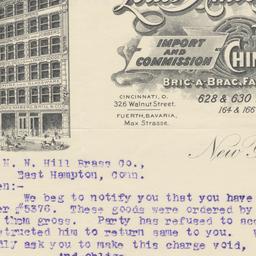 IMPORT
AND
COMMISSION
CHIN
BRIC-A-BRAC, FA
CINCINNATI, O.
326 Walnut Street.
FUERTH, BAVARIA,
Max Strasse.
628 & 630
164 & 166
New
N. N. Hill Brass Co.,
East Hampton, Conn.
en:-
We beg to notify you that you have
er #5376. These goods were ordered by
them gross. Party has refused to acc
structed him to return same to you. W
ly ask you to make this charge void,
And Oblige